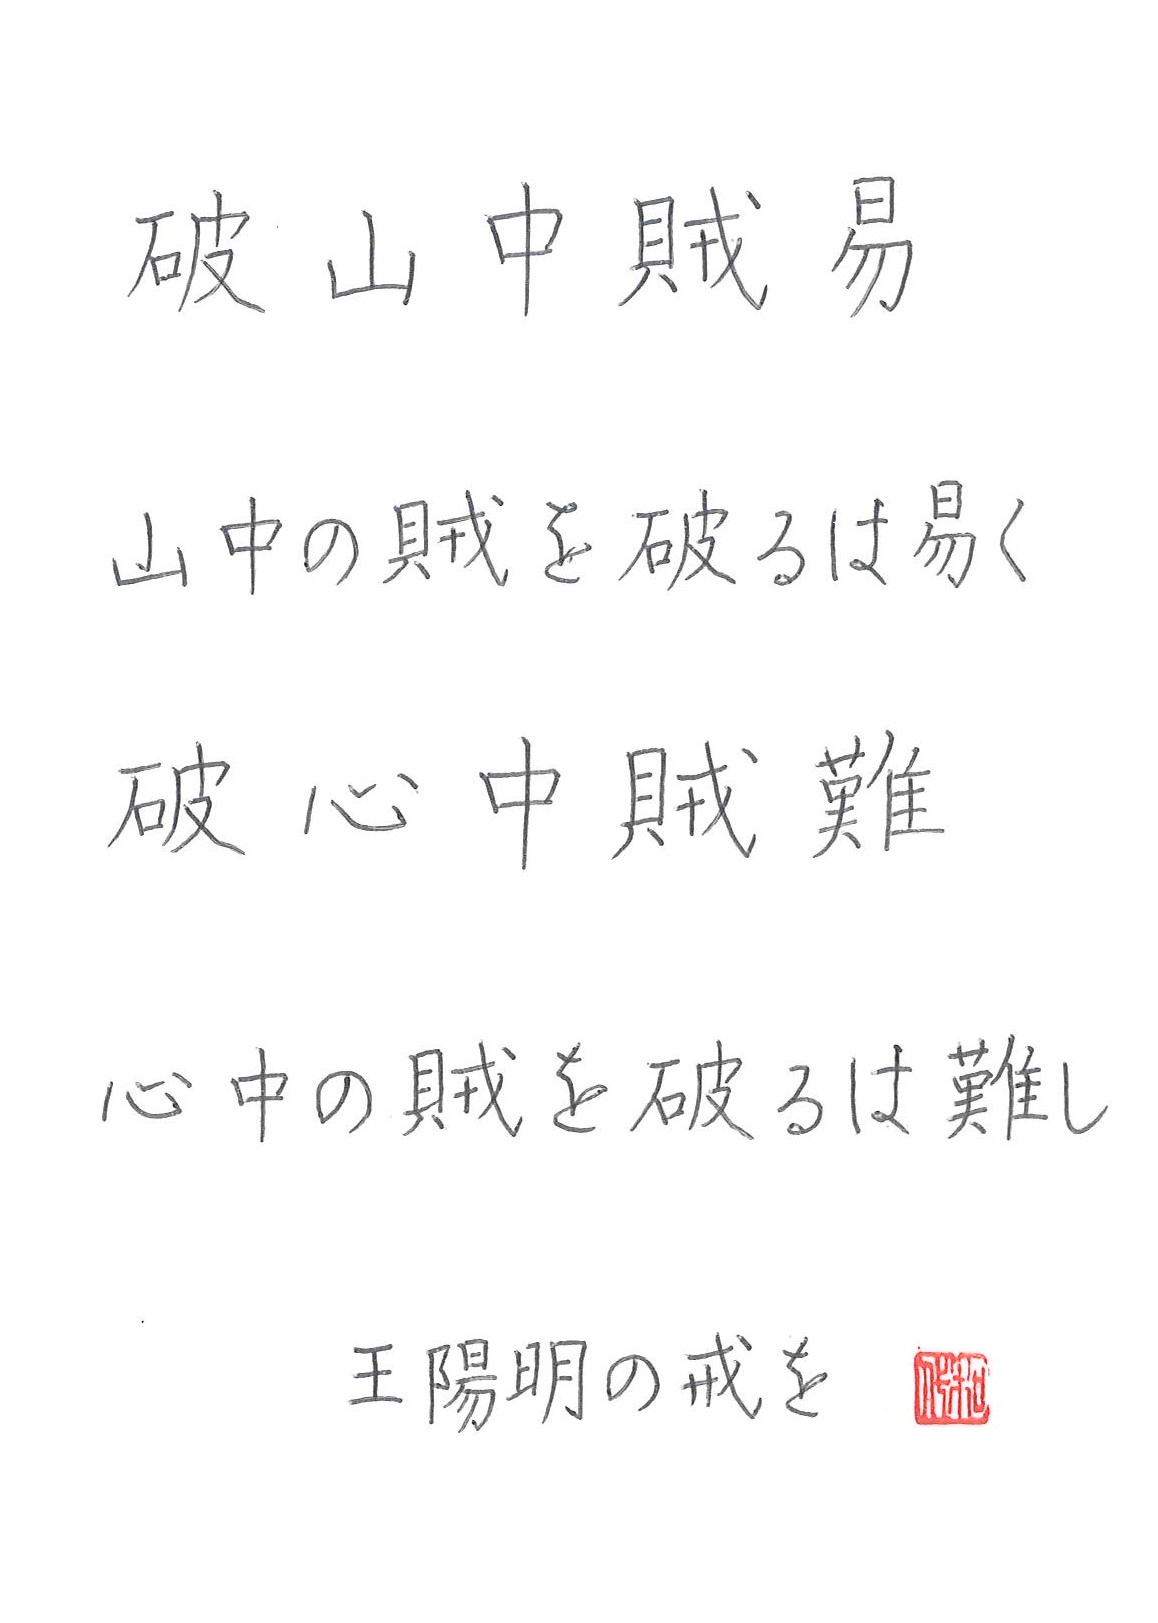 破山中賊易
山中の賊を破るは易く
破心中賊難
心中の賊を破るは難し
王陽明の戒を